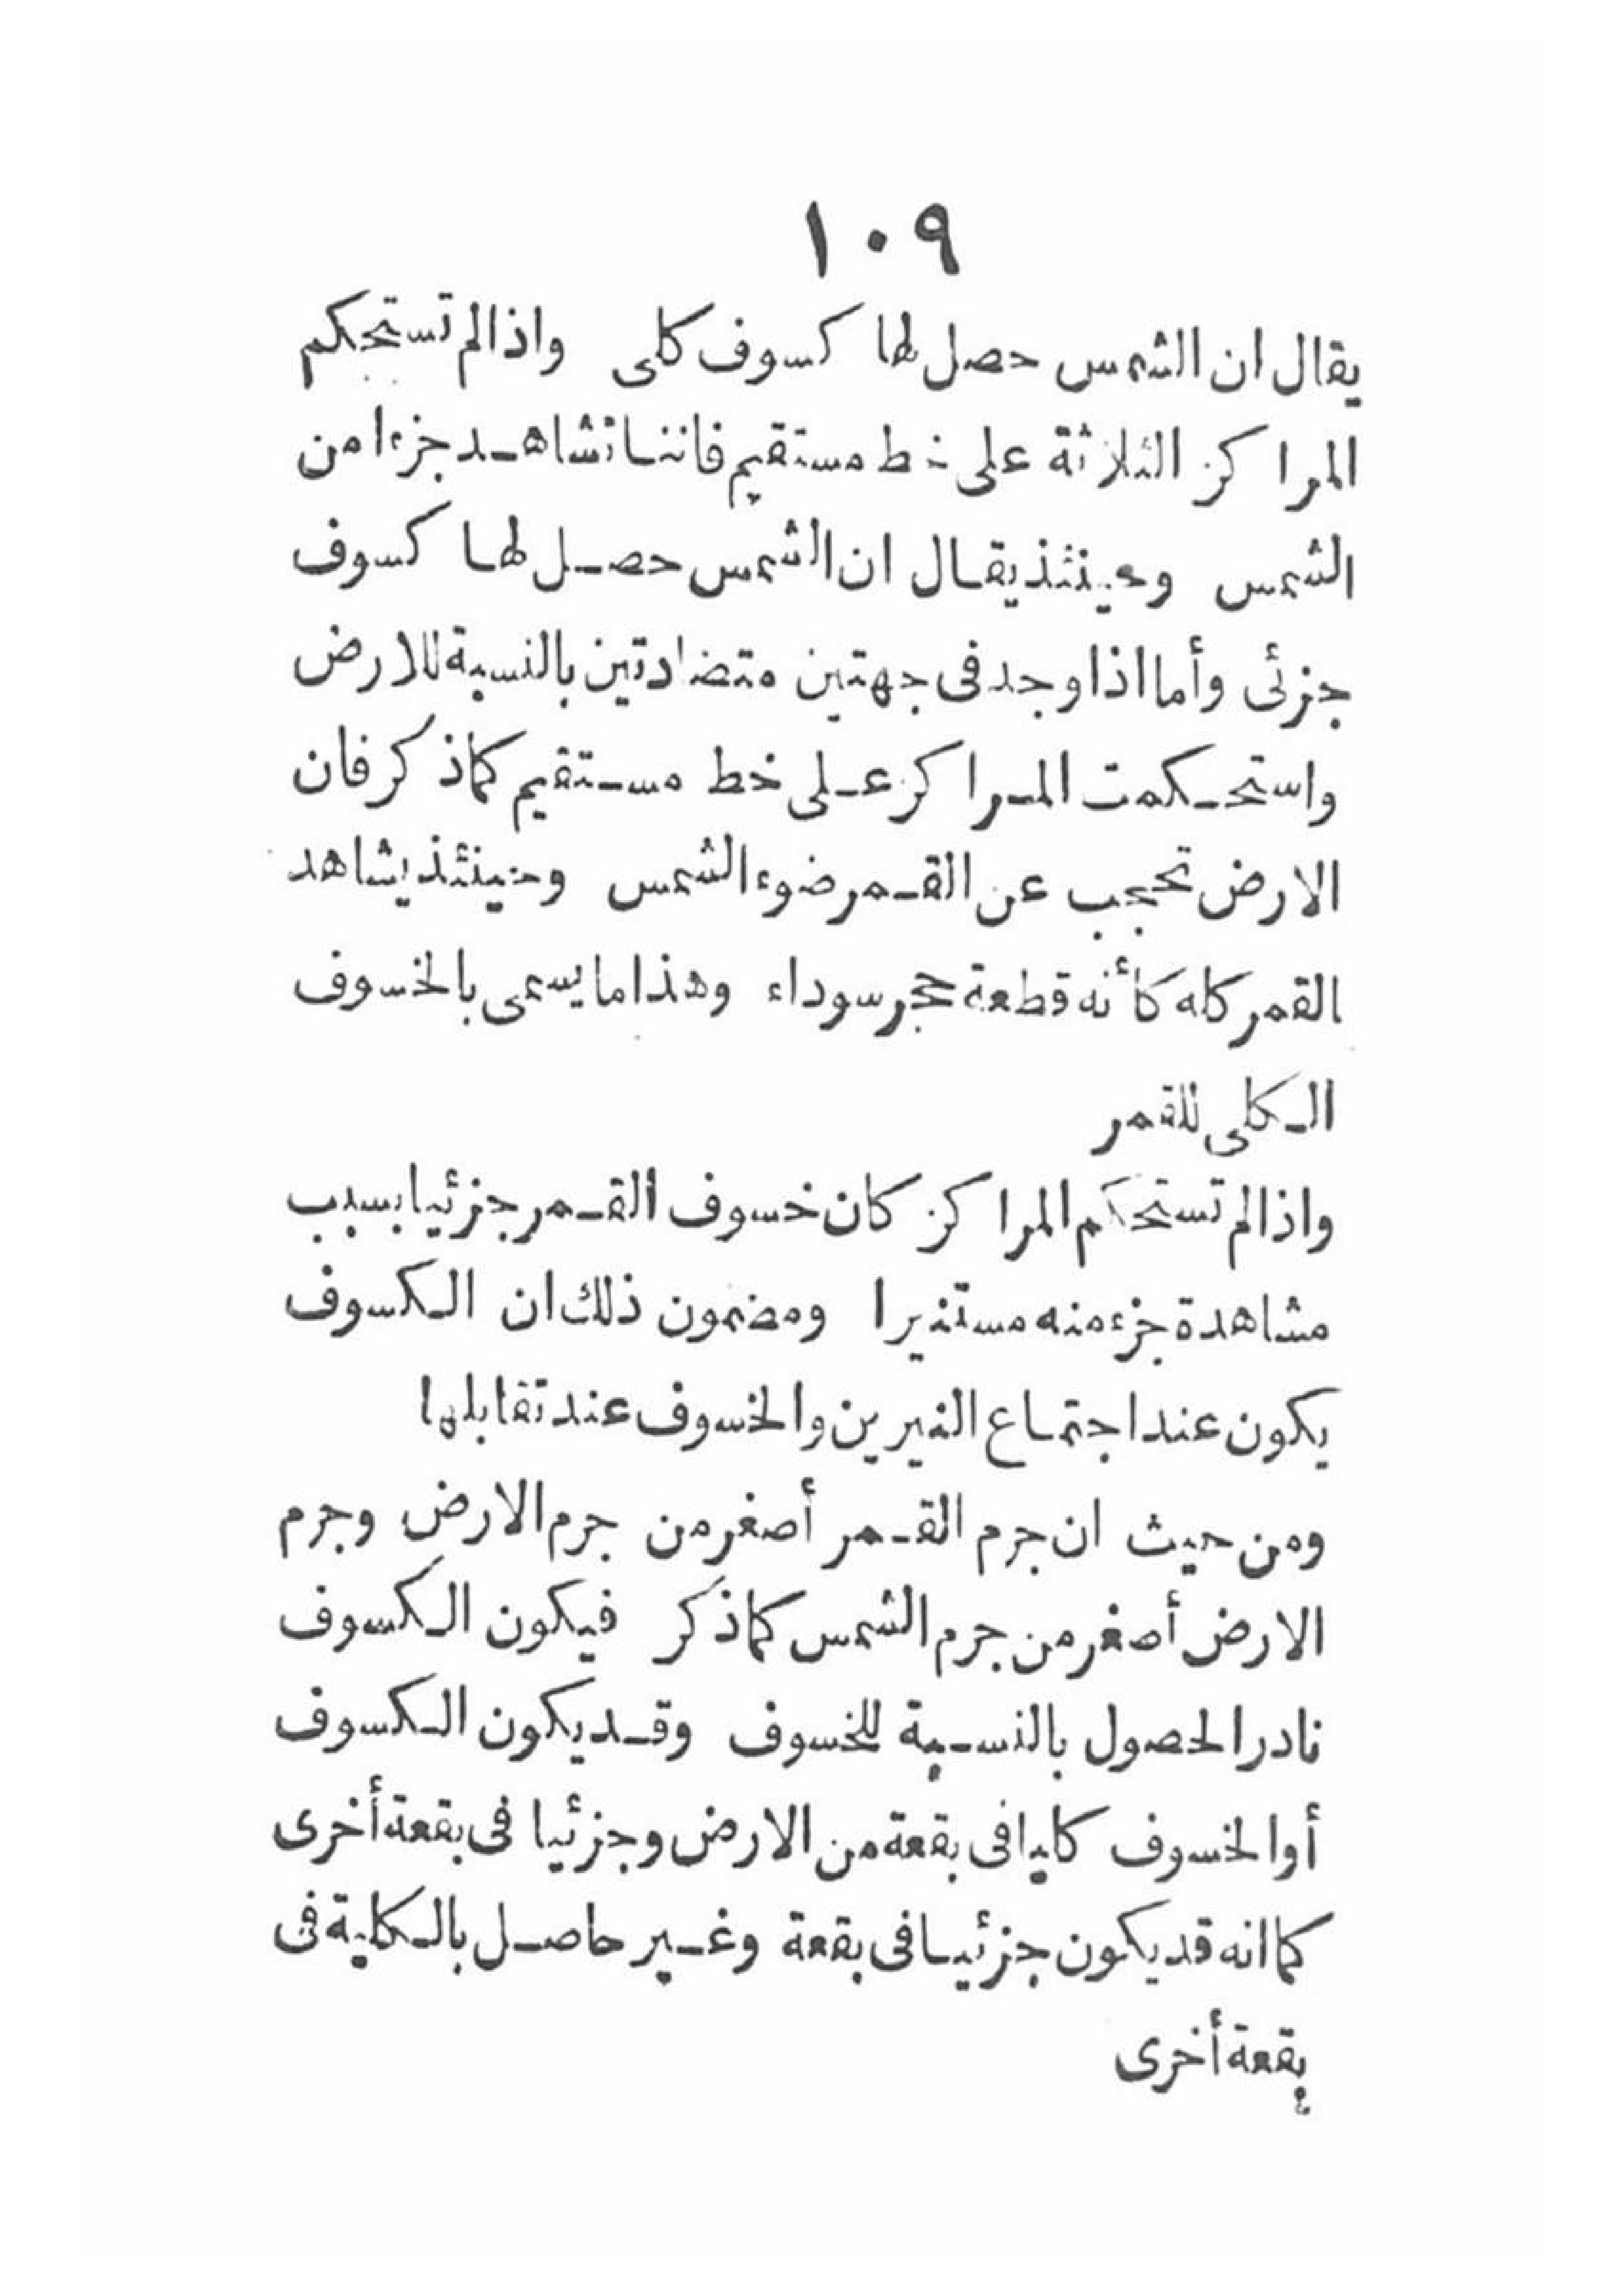 ١٠٩
يقال ان الشمس حصل لها كسوف كلى واذا لم تستحكم
المراكز الثلاثة على خط مستقيم فاننا نشاهد جزءا من
الشمس وحينئذ يقال ان الشمس حصل لها كسوف
جزئى وأما اذا وجد فى جهتين متضادتين بالنسبة للارض
واستحكمت المراكز على خط مستقيم كما ذكر فان
الارض تحجب عن القمر ضوء الشمس وحينئذ يشاهد
القمر كله كأنه قطعة حجر سوداء وهذا ما يسمى بالخسوف
الكلى للقمر
واذا لم تستحكم المراكز كان خسوف القمر جزئيا بسبب
مشاهدة جزء منه مستنيرا ومضمون ذلك ان الكسوف
يكون عند اجتماع النيرين والخسوف عند تقابلهما
ومن حيث ان جرم القمر أصغر من جرم الارض وجرم
الارض أصغر من جرم الشمس كما ذكر فيكون الكسوف
نادر الحصول بالنسبة للخسوف وقد يكون الكسوف
أو الخسوف كليا فى بقعة من الارض وجزئيا فى بقعة أخرى
كما انه قد يكون جزئيا فى بقعة وغير حاصل بالكلية فى
بقعة أخرى